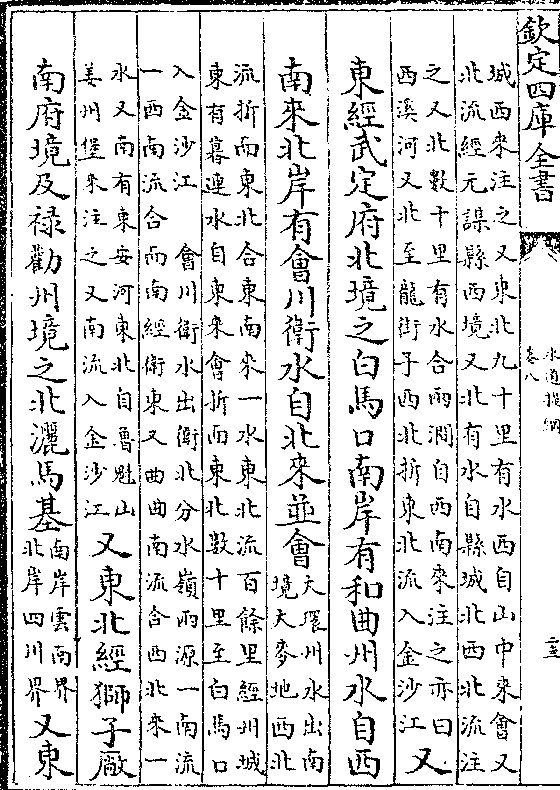 欽定四庫全書
水道提綱
卷八
城西來注之又東北九十里有水西自山中來會又
北流經元謀縣西境又北有水自縣城北西北流注
之又北數十里有水合兩澗自西南來注之亦曰
西溪河又北至龍街子西北折東北流入金沙江
又
東經武定府北境之白馬口南岸有和曲州水自西
南來北岸有會川衛水自北來並會
大環州水出南
境大麥地西北
流折而東北合東南來一水東北流百餘里經州城
東有幕連水自東來會折而東北數十里至白馬口
入金沙江 會川衛水出衛北分水嶺兩源一南流
一西南流合而南經衛東又曲曲南流合西北來一
水又南有東安河東北自魯魁山
姜州堡來注之又南流入金沙江
又東北經獅子廠
南府境及祿勸州境之北灑馬基
南岸雲南界
北岸四川界
又東